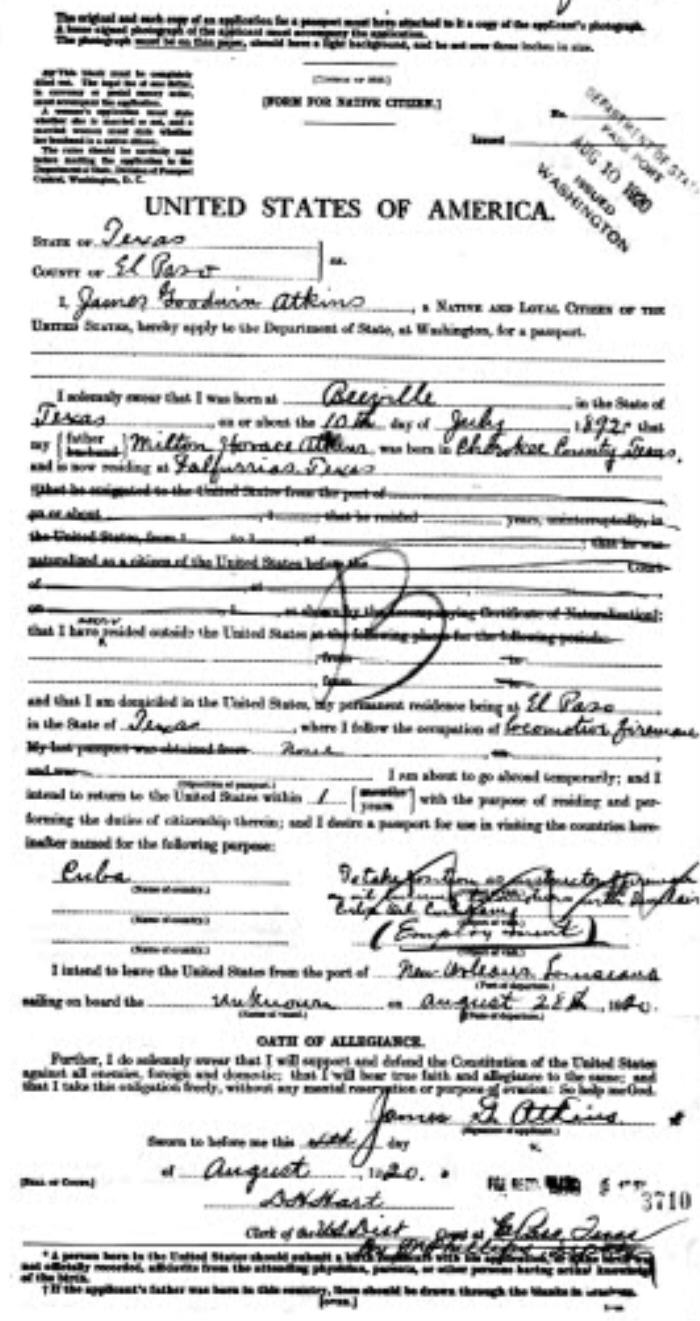 The original and each copy of an application for a passport must have attached to it a copy of the applicant's photograph.
A loose signed photograph of the applicant must accompany the application.
The photograph must be on thin paper, should have a light background, and be not over three inches in size.
[FORM FOR NATIVE CITIZEN.]
No.
Issued
DEPARTMENT OF STATE
PASSPORT
AUG 10 1920
ISSUED
WASHINGTON
UNITED STATES OF AMERICA.
STATE OF Texas
COUNTY OF El Paso
ss.
I, James Goodwin Atkins, a NATIVE AND LOYAL CITIZEN OF THE
UNITED STATES, hereby apply to the Department of State, at Washington, for a passport.
I solemnly swear that I was born at Beeville, in the State of
Texas, on or about the 10th day of July, 1892, that
my {father husband} Milton Horace Atkins, was born in Cherokee County Texas,
and is now residing at Falfurrias Texas
that he emigrated to the United States from the port of
on or about, 1 that he resided years, uninterruptedly, in
the United States, from 1 to 1, at; that he was
naturalized as a citizen of the United States before the Court
of at
on, 1, as shown by the accompanying Certificate of Naturalization];
that I have never resided outside the United States at the following places for the following periods:
, from to
, from to
B
and that I am domiciled in the United States, my permanent residence being at El Paso
in the State of Texas, where I follow the occupation of locomotive fireman
My last passport was obtained from None on
and was I am about to go abroad temporarily; and I
(Disposition of passport.)
intend to return to the United States within 1 [months years] with the purpose of residing and per-
forming the duties of citizenship therein; and I desire a passport for use in visiting the countries here-
inafter named for the following purpose:
Cuba To take position as instructor fireman
(Name of country.)
(Name of country.)
(Employment)
(Name of country.) (Object of visit.)
I intend to leave the United States from the port of New Orleans Louisiana
(Port of departure.)
sailing on board the Unknown on August 28th, 1920.
(Name of vessel.) (Date of departure.)
OATH OF ALLEGIANCE.
Further, I do solemnly swear that I will support and defend the Constitution of the United States
against all enemies, foreign and domestic; that I will bear true faith and allegiance to the same; and
that I take this obligation freely, without any mental reservation or purpose of evasion: So help me God.
James G. Atkins
(Signature of applicant.)
Sworn to before me this day
of August, 1920.
[SEAL OF COURT.]
3710
D H Hart
Clerk of the US Dist Court at El Paso, Texas
* A person born in the United States should submit a birth certificate with his application, or if the birth was
not officially recorded, affidavits from the attending physician, parents, or other persons having actual knowledge
of the birth.
† If the applicant's father was born in this country, lines should be drawn through the blanks in
[OVER.]